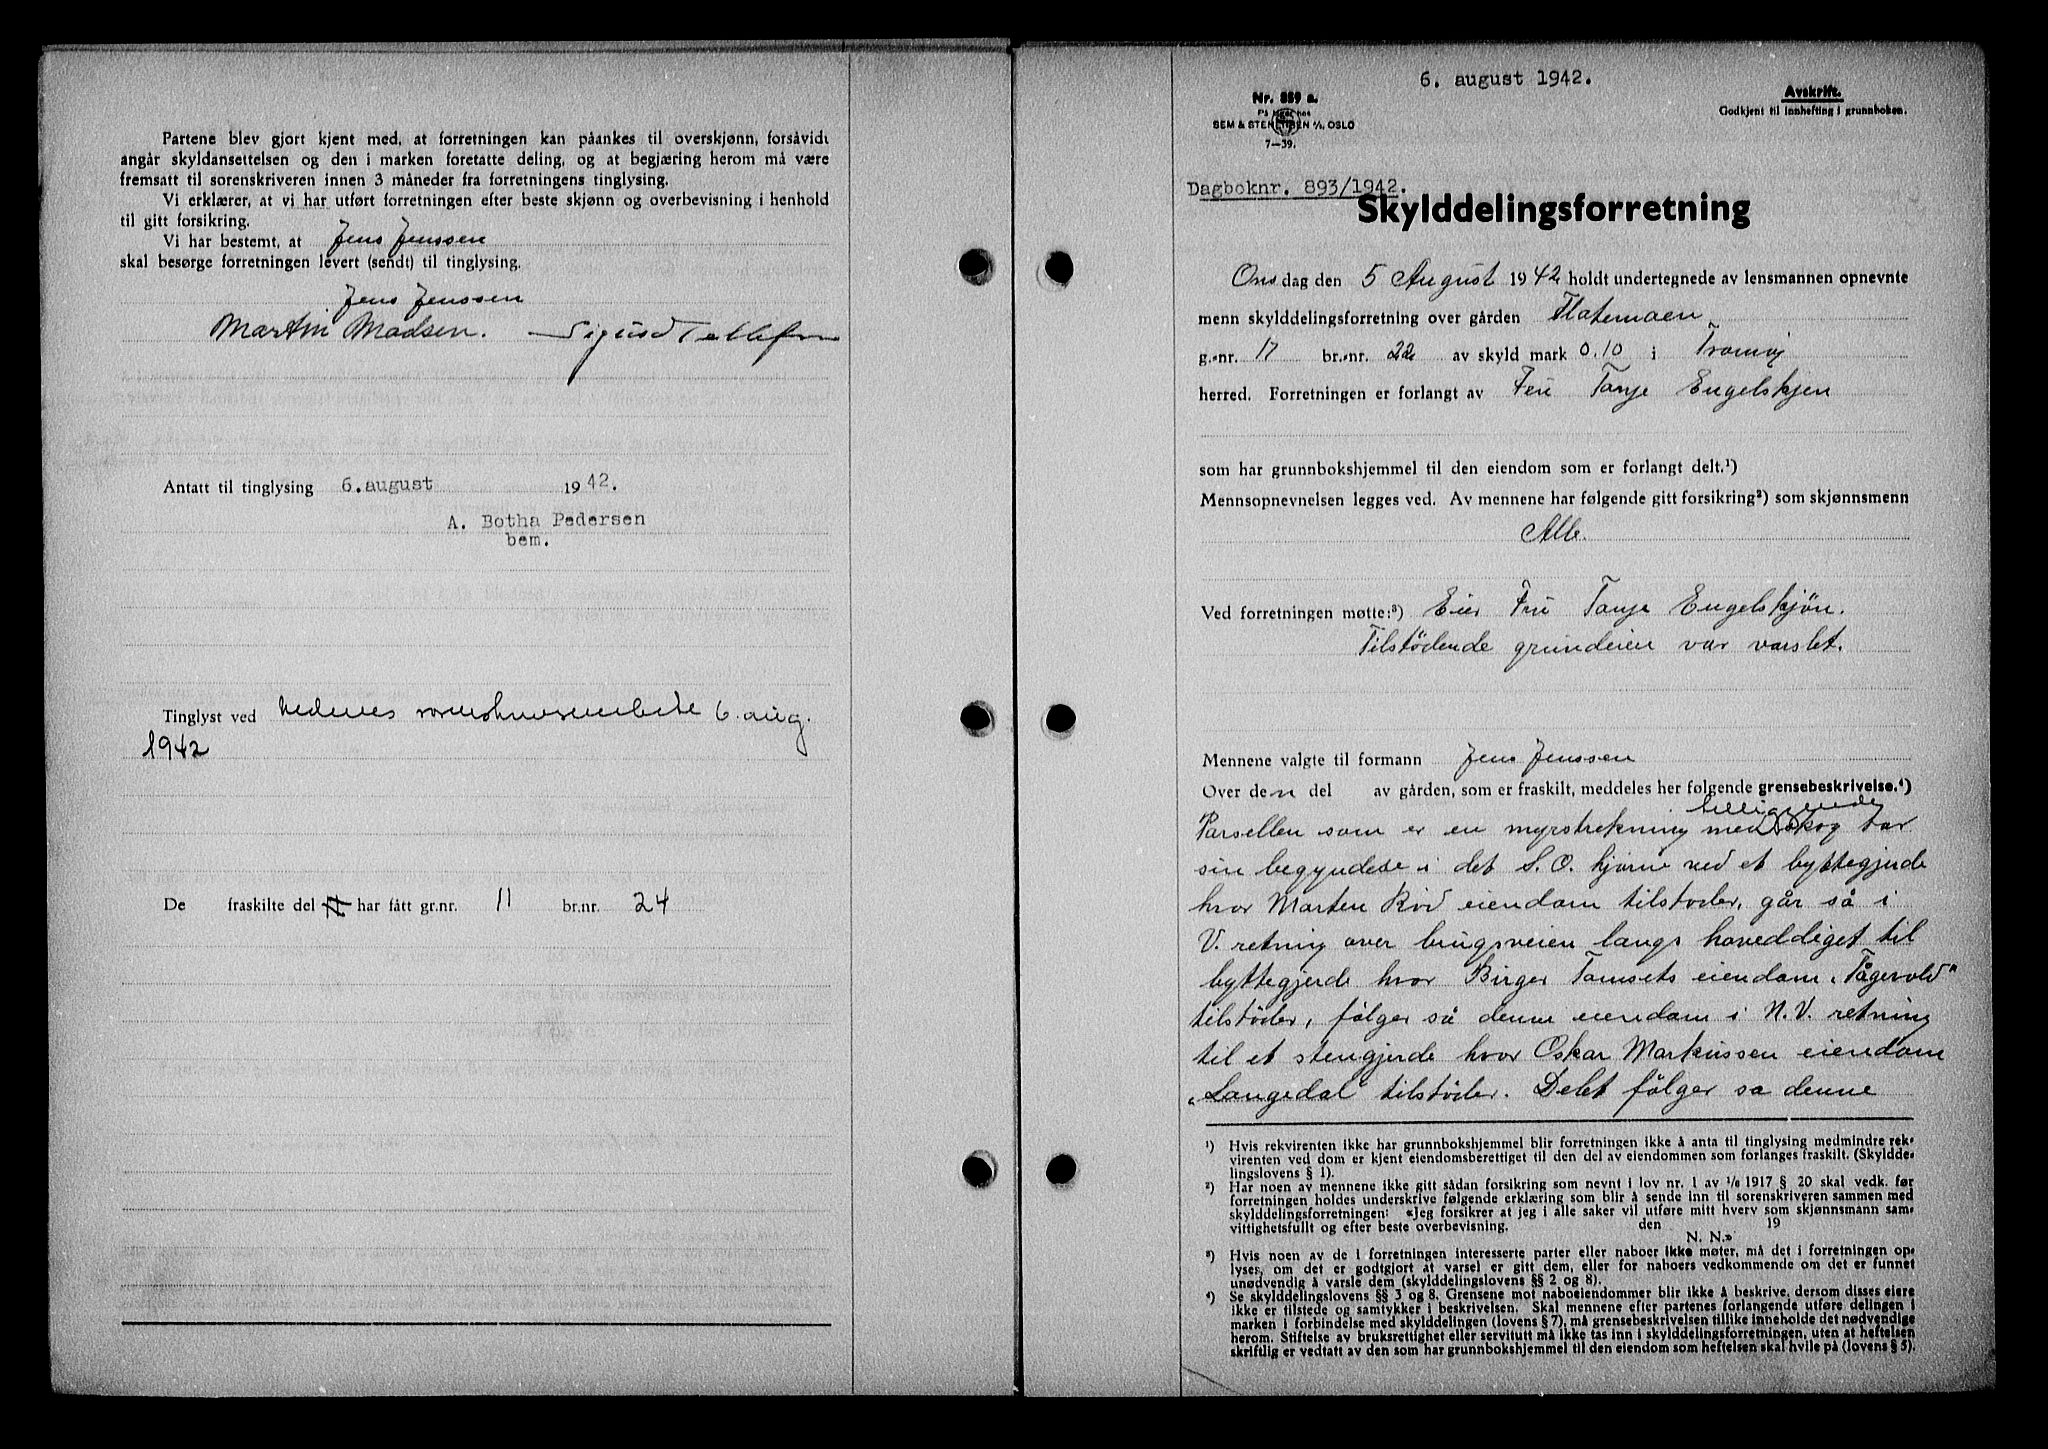 Partene blev gjort kjent med, at forretningen kan påankes til overskjønn, forsåvidt
angår skyldansettelsen og den i marken foretatte deling, og at begjæring herom må være
fremsatt til sorenskriveren innen 3 måneder fra forretningens tinglysing.
Vi erklærer, at vi har utført forretningen efter beste skjønn og overbevisning i henhold
til gitt forsikring.
Vi har bestemt, at Jens Jenssen
skal besørge forretningen levert (sendt) til tinglysing.
Jens Jenssen
Martin Madsen. Sigurd Tellefsen
Antatt til tinglysing 6. august 1942.
A. Botha Pedersen
bem.
Tinglyst ved Nedenes sorenskriverembede 6. aug.
1942
De fraskilte del har fått gr.nr. 11 br.nr. 24
6. august 1942.
Nr. 859 a.
På lager hos
SEM & STENERSEN A/S, OSLO
7—39.
Avskrift.
Godkjent til innhefting i grunnboken.
Dagboknr. 893/1942.
Skylddelingsforretning
Onsdag den 5 August 1942 holdt undertegnede av lensmannen opnevnte
menn skylddelingsforretning over gården Flatemoen
g.-nr. 11 br.-nr. 22 av skyld mark 0.10 i Tromøy
herred. Forretningen er forlangt av Fru Tanje Engelskjen
som har grunnbokshjemmel til den eiendom som er forlangt delt.¹)
Mennsopnevnelsen legges ved. Av mennene har følgende gitt forsikring²) som skjønnsmenn
Alle.
Ved forretningen møtte:³) Eier Fru Tanje Engelskjön.
Tilstödende grundeier var varslet.
Mennene valgte til formann Jens Jenssen
Over den del av gården, som er fraskilt, meddeles her følgende grensebeskrivelse.⁴)
tilliggende
Parsellen som er en myrstrekning med skog tar
sin begyndelse i det S.O. hjørne ved et byttegjerde
hvor Marten Röd eiendom tilstöder, går så i
V. retning over brugsveien langs hoveddiget til
byttegjerde hvor Birger Tamsets eiendom "Tågevold"
tilstöder, fölger så denne eiendom i N.V. retning
til et stengjerde hvor Oskar Markussen eiendom
"Langedal" tilstöder. Delet fölger sa denne
¹) Hvis rekvirenten ikke har grunnbokshjemmel blir forretningen ikke å anta til tinglysing medmindre rek-
virenten ved dom er kjent eiendomsberettiget til den del av eiendommen som forlanges fraskilt. (Skyldde-
lingslovens § 1).
²) Har noen av mennene ikke gitt sådan forsikring som nevnt i lov nr. 1 av 1/6 1917 § 20 skal vedk. før
forretningen holdes underskrive følgende erklæring som blir å sende inn til sorenskriveren sammen med
skylddelingsforretningen: «Jeg forsikrer at jeg i alle saker vil utføre mitt hverv som skjønnsmann sam-
vittighetsfullt og efter beste overbevisning. den 19
N. N.»
³) Hvis noen av de i forretningen interesserte parter eller naboer ikke møter, må det i forretningen op-
lyses, om det er godtgjort at varsel er gitt dem, eller for naboers vedkommende om det er funnet
unødvendig å varsle dem (skylddelingslovens §§ 2 og 8).
⁴) Se skylddelingslovens §§ 3 og 8. Grensene mot naboeiendommer blir ikke å beskrive, dersom disses eiere
ikke er tilstede og samtykker i beskrivelsen. Skal mennene efter partenes forlangende utføre delingen i
marken i forbindelse med skylddelingen (lovens § 7), må grensebeskrivelsen tillike inneholde det nødvendige
herom. Stiftelse av bruksrettighet eller servitutt må ikke tas inn i skylddelingsforretningen, uten at heftelsen
skriftlig er vedtatt av den som har grunnbokshjemmel til den eiendom som heftelsen skal hvile på (lovens § 5).